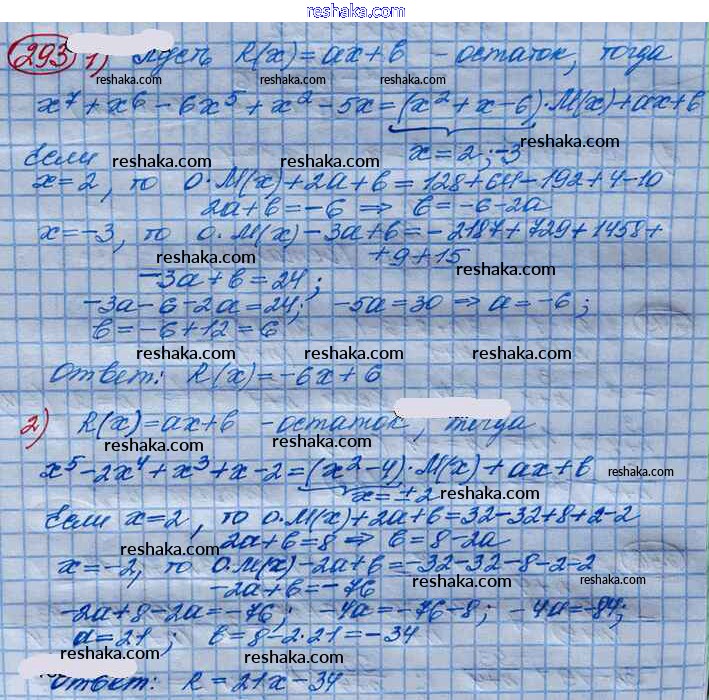 www.reshaka.com
293 1) Пусть R(x)=ax+b - остаток, тогда
reshaka.com reshaka.com reshaka.com
x⁷+x⁶-6x⁵+x²-5x=(x²+x-6)·M(x)+ax+b
reshaka.com reshaka.com
Если x=2;-3
x=2, то 0·M(x)+2a+b=128+64-192+4-10
reshaka.com reshaka.com
2a+b=-6 ⇒ b=-6-2a
x=-3, то 0·M(x)-3a+b=-2187+729+1458+
+9+15
reshaka.com reshaka.com
-3a+b=24;
-3a-6-2a=24; -5a=30 ⇒ a=-6;
b=-6+12=6
reshaka.com reshaka.com reshaka.com
Ответ: R(x)=-6x+6
2) R(x)=ax+b - остаток, тогда
reshaka.com reshaka.com
x⁵-2x⁴+x³+x-2=(x²-4)·M(x)+ax+b
reshaka.com reshaka.com
x=±2
reshaka.com reshaka.com
Если x=2, то 0·M(x)+2a+b=32-32+8+2-2
2a+b=8 ⇒ b=8-2a
reshaka.com
x=-2, то 0·M(x)-2a+b=-32-32-8-2-2
reshaka.com reshaka.com
-2a+b=-76
-2a+8-2a=-76; -4a=-76-8; -4a=-84;
reshaka.com reshaka.com reshaka.com
a=21; b=8-2·21=-34
reshaka.com reshaka.com
Ответ: R=21x-34
reshaka.com reshaka.com